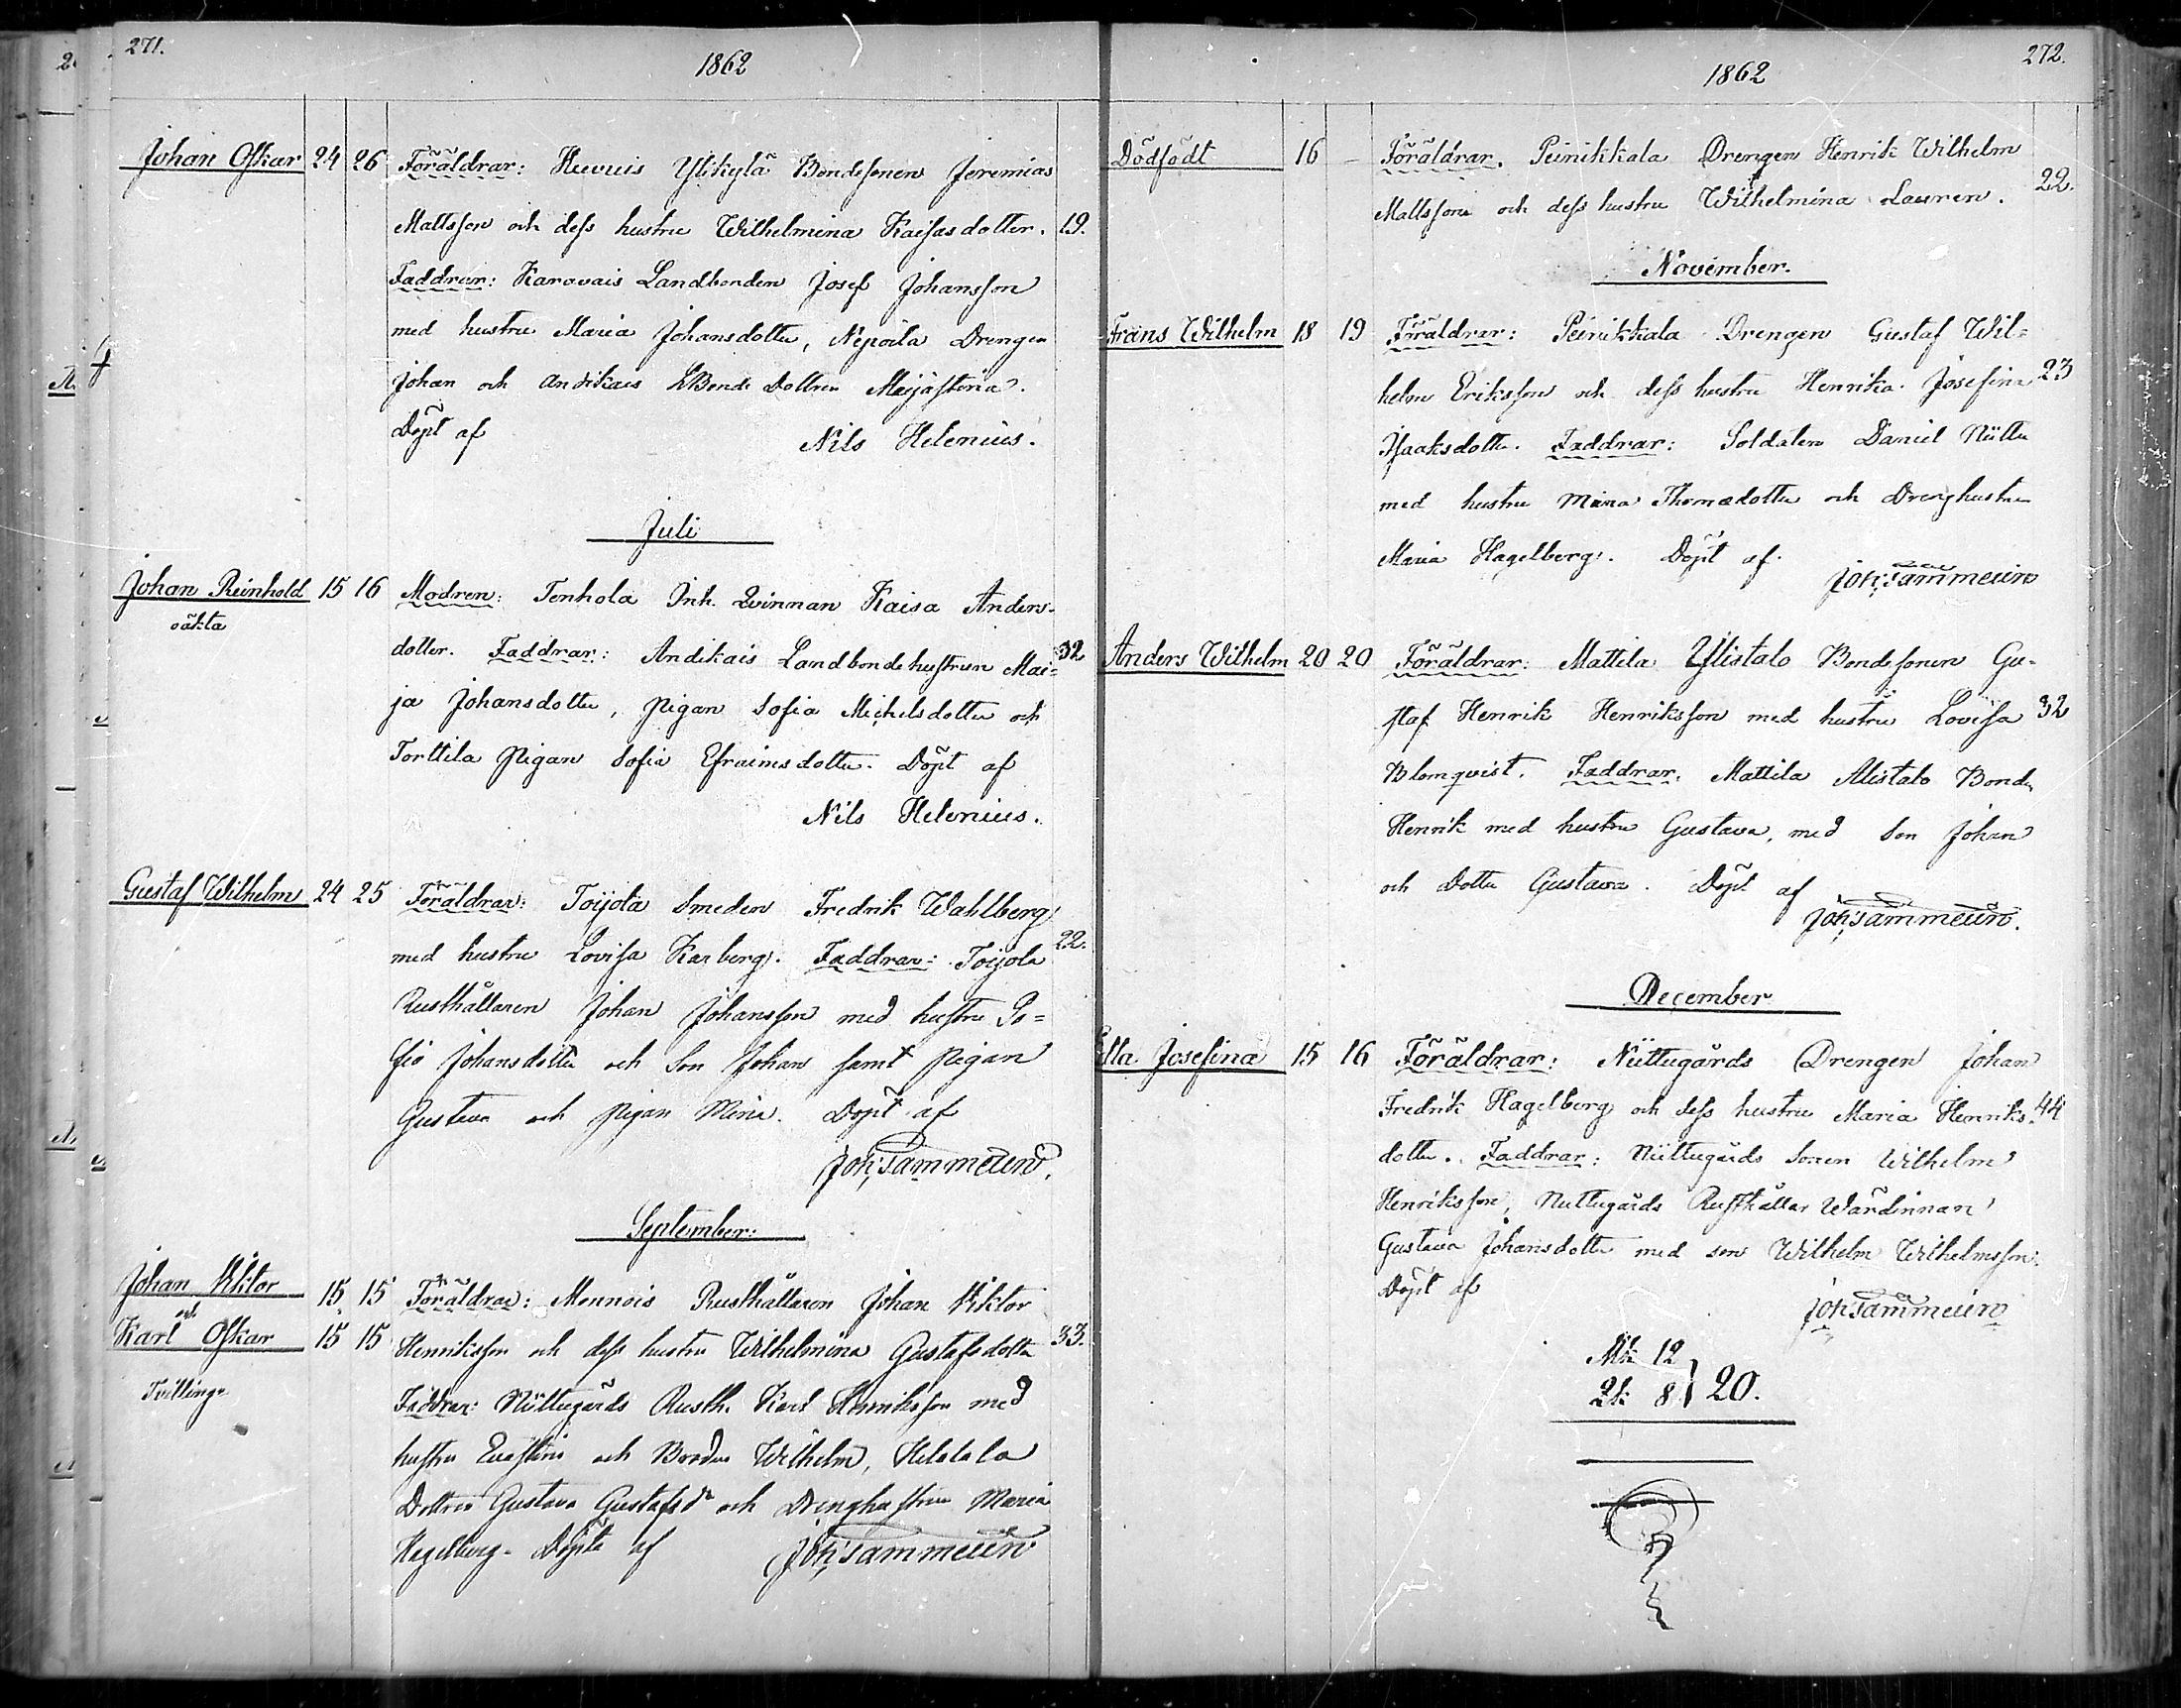 271.
1862
Johan Oskar 24 26 Föräldrar: Huvuis Ylikylä Bondesonen Jeremias
Mattsson och dess hustru Wilhelmina Kaisasdotter. 19.
Faddrar: Karavais Landbonden Josef Johansson
med hustru Maria Johansdotter, Nepoila Drengen
Johan och Andikais LBonde Dottren Maijastina.
Döpt af Nils Helenius.
Juli
Johan Reinhold 15 16 Modren: Tenhola Inh. Qvinnan Kaisa Anders-
oäkta
dotter. Faddrar: Andikais Landbondehustrun Mai= 32
ja Johansdotter, pigan Sofia Michelsdotter och
Torttila pigan Sofia Efraimsdotter. Döpt af
Nils Helenius.
Gustaf Wilhelm 24 25 Föräldrar: Toijola Smeden Fredrik Wahlberg
med hustru Lovisa Karberg. Faddrar: Toijola 22.
Rusthållaren Johan Johansson med hustru So=
fia Johansdotter och Son Johan samt pigan
Gustava och pigan Mina. Döpt af
Joh: Sammeun.
September.
Johan Viktor 15 15 Föräldrar: Monnois Rusthållaren Johan Viktor
och
Karl Oskar 15 15 Henriksson och dess hustru Wilhelmina Gustafsdotter 33.
Tvillingr Faddrar: Nüttugårds Rusth. Karl Henriksson med
hustru Evastina och Broder Wilhelm,
Dottren Gustava Gustafsdr och Drenghustrun Maria
Hagelberg. Döpte af Joh: Sammeun
272.
1862
Dödfödt 16 – Föräldrar. Peinikkala Drengen Henrik Wilhelm
Mattsson och dess hustru Wilhelmina Lauren. 22.
November.
Frans Wilhelm 18 19 Föräldrar: Peinikkala Drengen Gustaf Wil=
helm Eriksson och dess hustru Henrika Josefina 23
Isaaksdotter. Faddrar: Soldaten Daniel Nüttu
med hustru Maria Thomædotter och Drenghustrun
Maria Hagelberg. Döpt af
Joh: Sammeun
Anders Wilhelm 20 20 Föräldrar: Mattila Ylistalo Bondesonen Gu-
staf Henrik Henriksson med hustru Lovisa 32
Blomqvist. Faddrar. Mattila Alistalo Bonde
Henrik med hustru Gustava, med Son Johan
och Dotter Gustava. Döpt af
Joh: Sammeun.
December
Ella Josefina 15 16 Föräldrar: Nüttugårds Drengen Johan
Fredrik Hagelberg och dess hustru Maria Henriks- 44
dotter. Faddrar: Nüttugårds Sonen Wilhelm
Henriksson, Nuttugårds Rusthållar Wärdinnan
Gustava Johansdotter med son Wilhelm Wilhelmsson.
Döpt af
Joh: Sammeun
Mk 12
Qk 8 } 20.